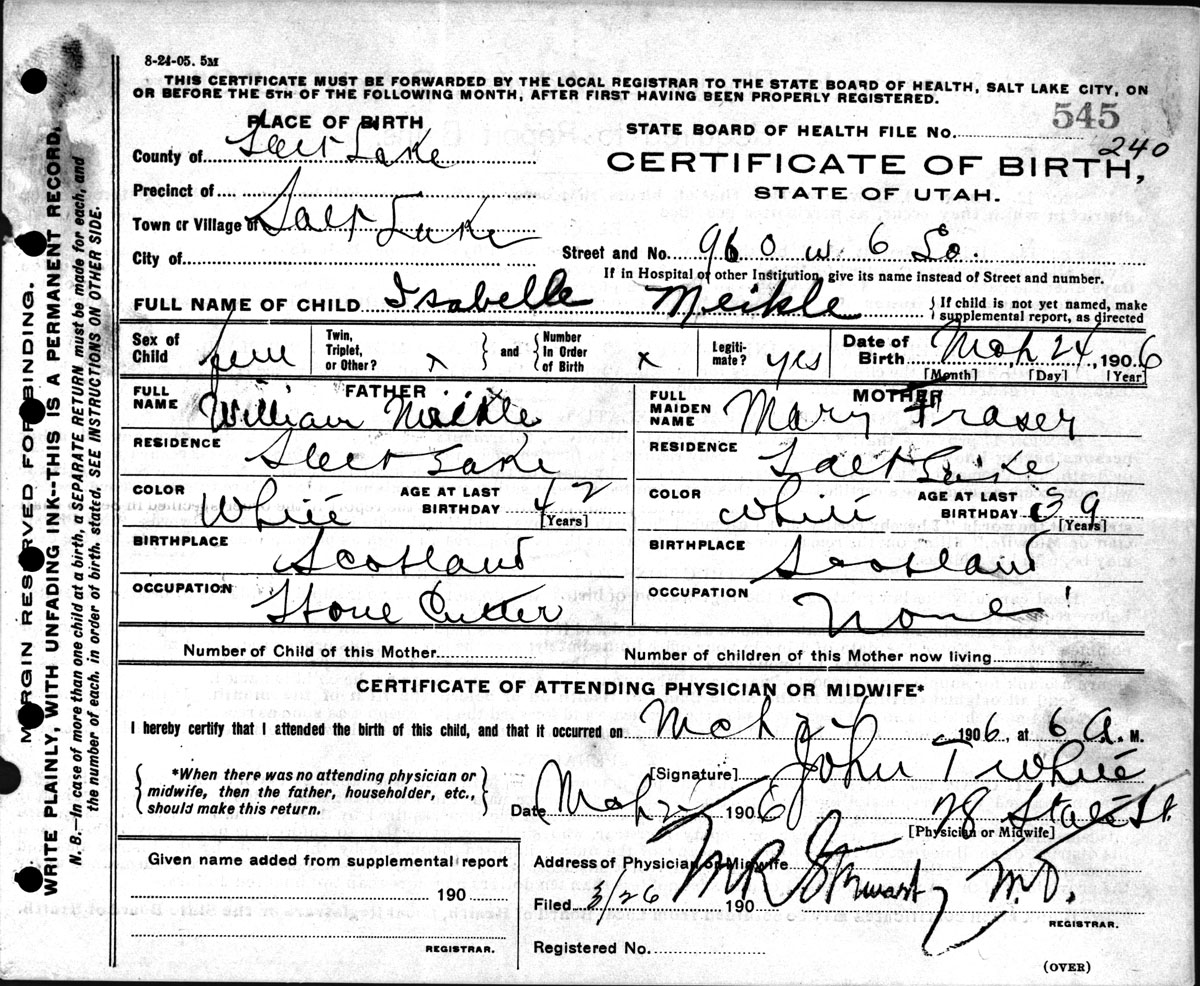 8-24-05. 5M
THIS CERTIFICATE MUST BE FORWARDED BY THE LOCAL REGISTRAR TO THE STATE BOARD OF HEALTH, SALT LAKE CITY, ON
OR BEFORE THE 5TH OF THE FOLLOWING MONTH, AFTER FIRST HAVING BEEN PROPERLY REGISTERED.
PLACE OF BIRTH
County of Salt Lake
Precinct of
Town or Village of Salt Lake
City of
STATE BOARD OF HEALTH FILE NO. 545
240
CERTIFICATE OF BIRTH,
STATE OF UTAH.
Street and No. 960 w. 6 So.
If in Hospital or other Institution, give its name instead of Street and number.
FULL NAME OF CHILD Isabelle Meikle
{ If child is not yet named, make
supplemental report, as directed
Sex of
Child fem
Twin,
Triplet,
or Other? x } and { Number
in Order
of Birth x
Legiti-
mate? yes
Date of
Birth Mch 24, 1906
[Month] [Day] [Year]
FATHER
FULL
NAME William Meikle
RESIDENCE Salt Lake
COLOR White AGE AT LAST
BIRTHDAY 42
[Years]
BIRTHPLACE Scotland
OCCUPATION Stone Cutter
MOTHER
FULL
MAIDEN
NAME Mary Fraser
RESIDENCE Salt Lake
COLOR White AGE AT LAST
BIRTHDAY 39
[Years]
BIRTHPLACE Scotland
OCCUPATION None
Number of Child of this Mother
Number of children of this Mother now living
CERTIFICATE OF ATTENDING PHYSICIAN OR MIDWIFE*
I hereby certify that I attended the birth of this child, and that it occurred on Mch 1906, at 6 A. M.
{ *When there was no attending physician or
midwife, then the father, householder, etc.,
should make this return. }
[Signature] John T White
Date Mch 1906 78 State St.
[Physician or Midwife]
Given name added from supplemental report
190
REGISTRAR.
Address of Physician or Midwife
Filed 3/26 190 M R Stewart M.D.
REGISTRAR.
Registered No.
(OVER)
MARGIN RESERVED FOR BINDING.
WRITE PLAINLY, WITH UNFADING INK--THIS IS A PERMANENT RECORD.
N. B.—In case of more than one child at a birth, a SEPARATE RETURN must be made for each, and
the number of each, in order of birth, stated. SEE INSTRUCTIONS ON OTHER SIDE.